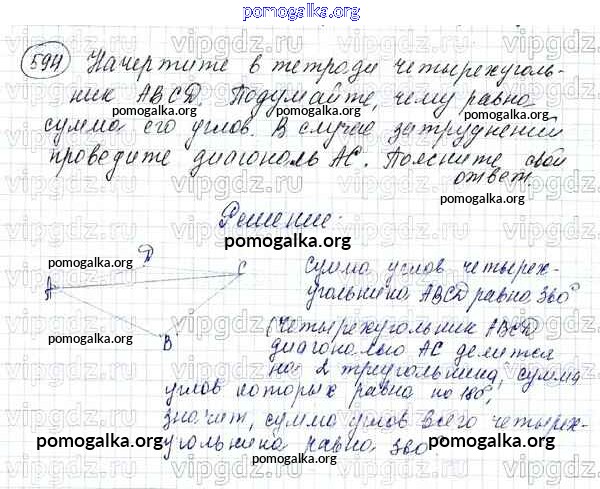 pomogalka.org
594 Начертите в тетради четырехуголь-
ник ABCD. Подумайте, чему равна
сумма его углов. В случае затруднений
проведите диагональ AC. Поясните свой
ответ.
Решение:
pomogalka.org
D
A
C
B
сумма углов четырех-
угольника ABCD равна 360°
(четырехугольник ABCD
диагональю AC делится
на 2 треугольника, сумма
углов которых равна по 180°,
значит, сумма углов всего четырех-
угольника равна 360°
pomogalka.org